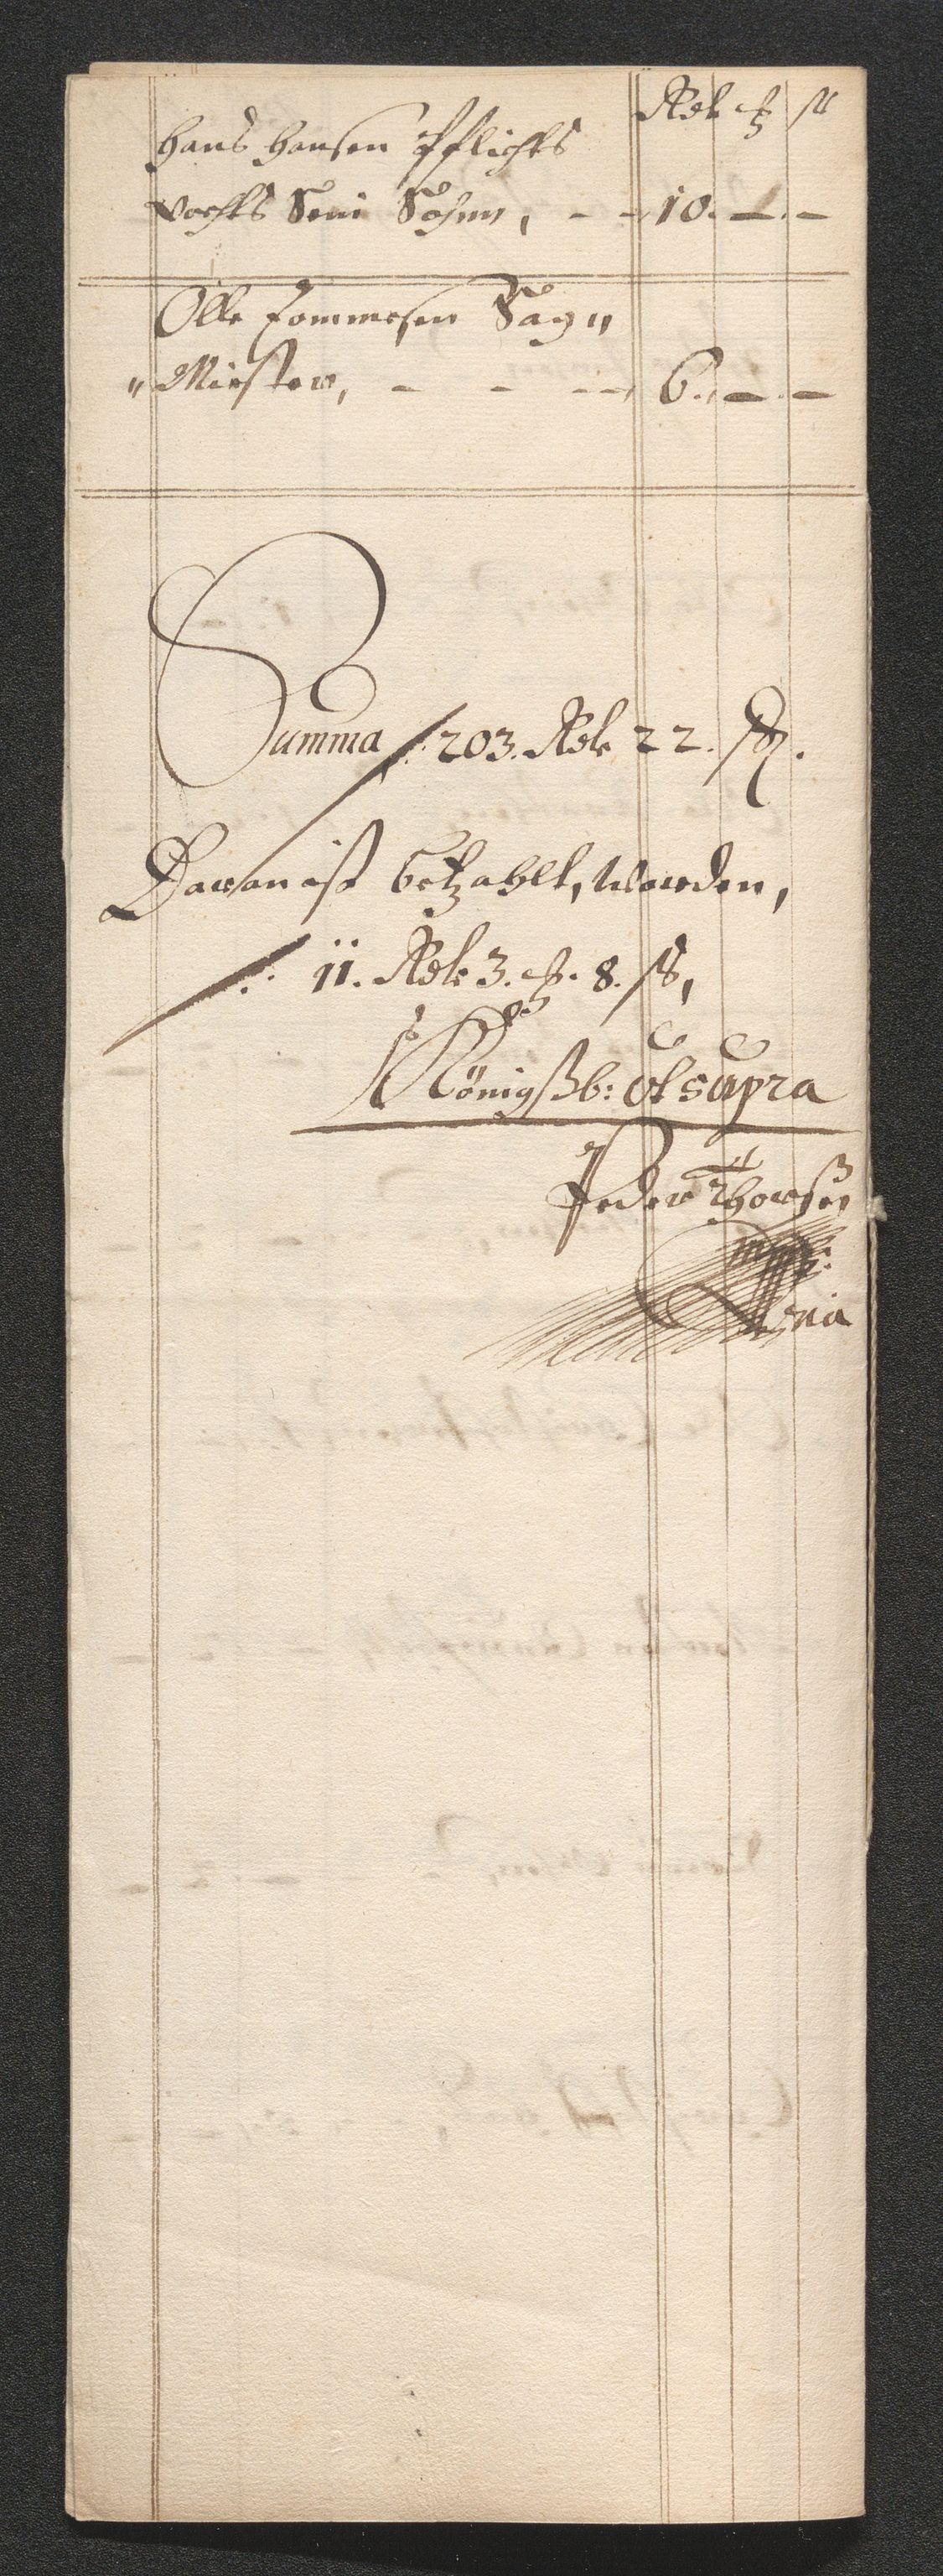 Rdl ß
Hans Hansen Pflichts
vochts Seni Söhnn, - - 10. — —
Olle Tommesen Sag„
„Miester, - - - 6. — —
Summa /: 203. Rdl 22. ß.
Daran ist betzahlt, worden,
/: 11. Rdl 3. 8. ß,
Königßb: Ut supra
Peder Thorßen
mpp: